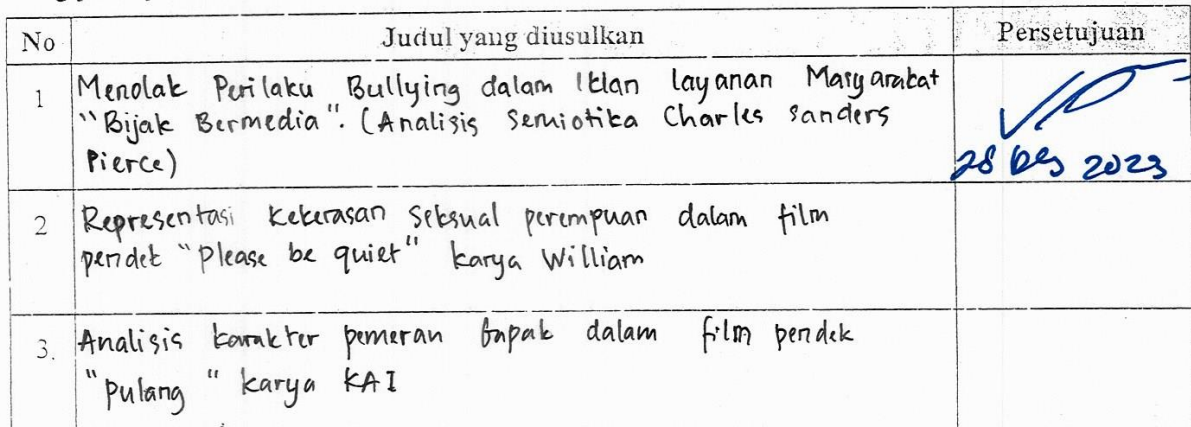 No Judul yang diusulkan Persetujuan
1 Menolak Perilaku Bullying dalam Iklan layanan Masyarakat
"Bijak Bermedia". (Analisis Semiotika Charles Sanders
Pierce)
28 Des 2023
2 Representasi kekerasan seksual perempuan dalam film
pendek "Please be quiet" karya William
3. Analisis karakter pemeran bapak dalam film pendek
"pulang" karya KAI